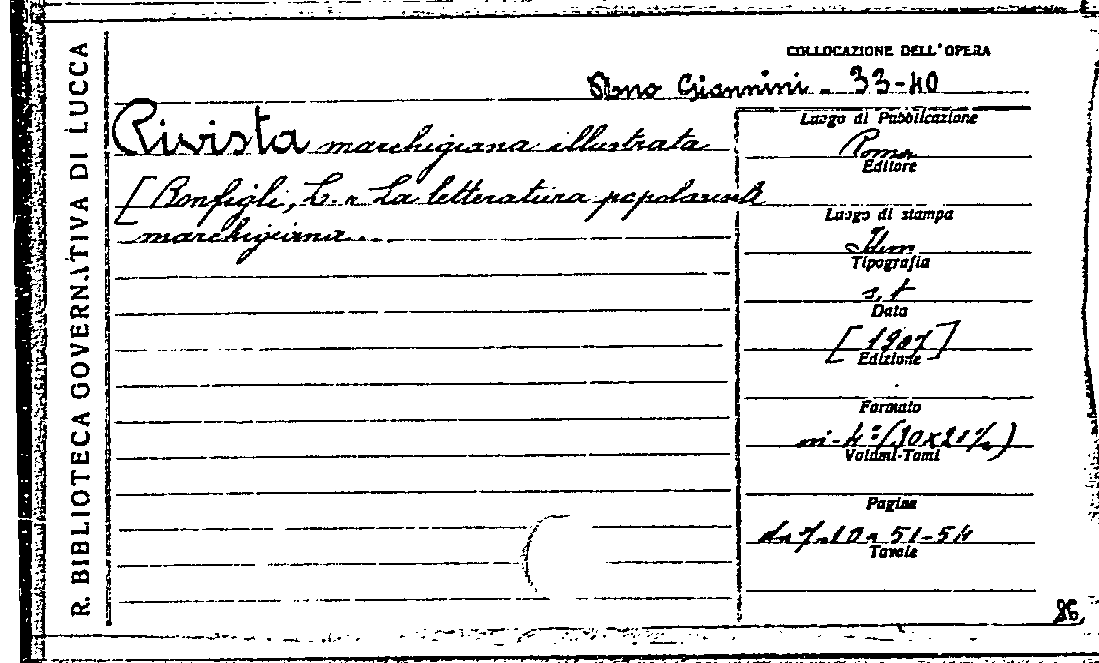 R. BIBLIOTECA GOVERNATIVA DI LUCCA
COLLOCAZIONE DELL'OPERA
Giannini - 33-40
Rivista marchigiana illustrata
[Bonfigli, L. La letteratura popolare
marchigiana...
Luogo di Pubblicazione
Roma
Editore
Luogo di stampa
Idem
Tipografia
s. t
Data
[1907]
Edizione
Formato
in-4° (30x21
Volumi-Tomi
Pagine
51-54
Tavole